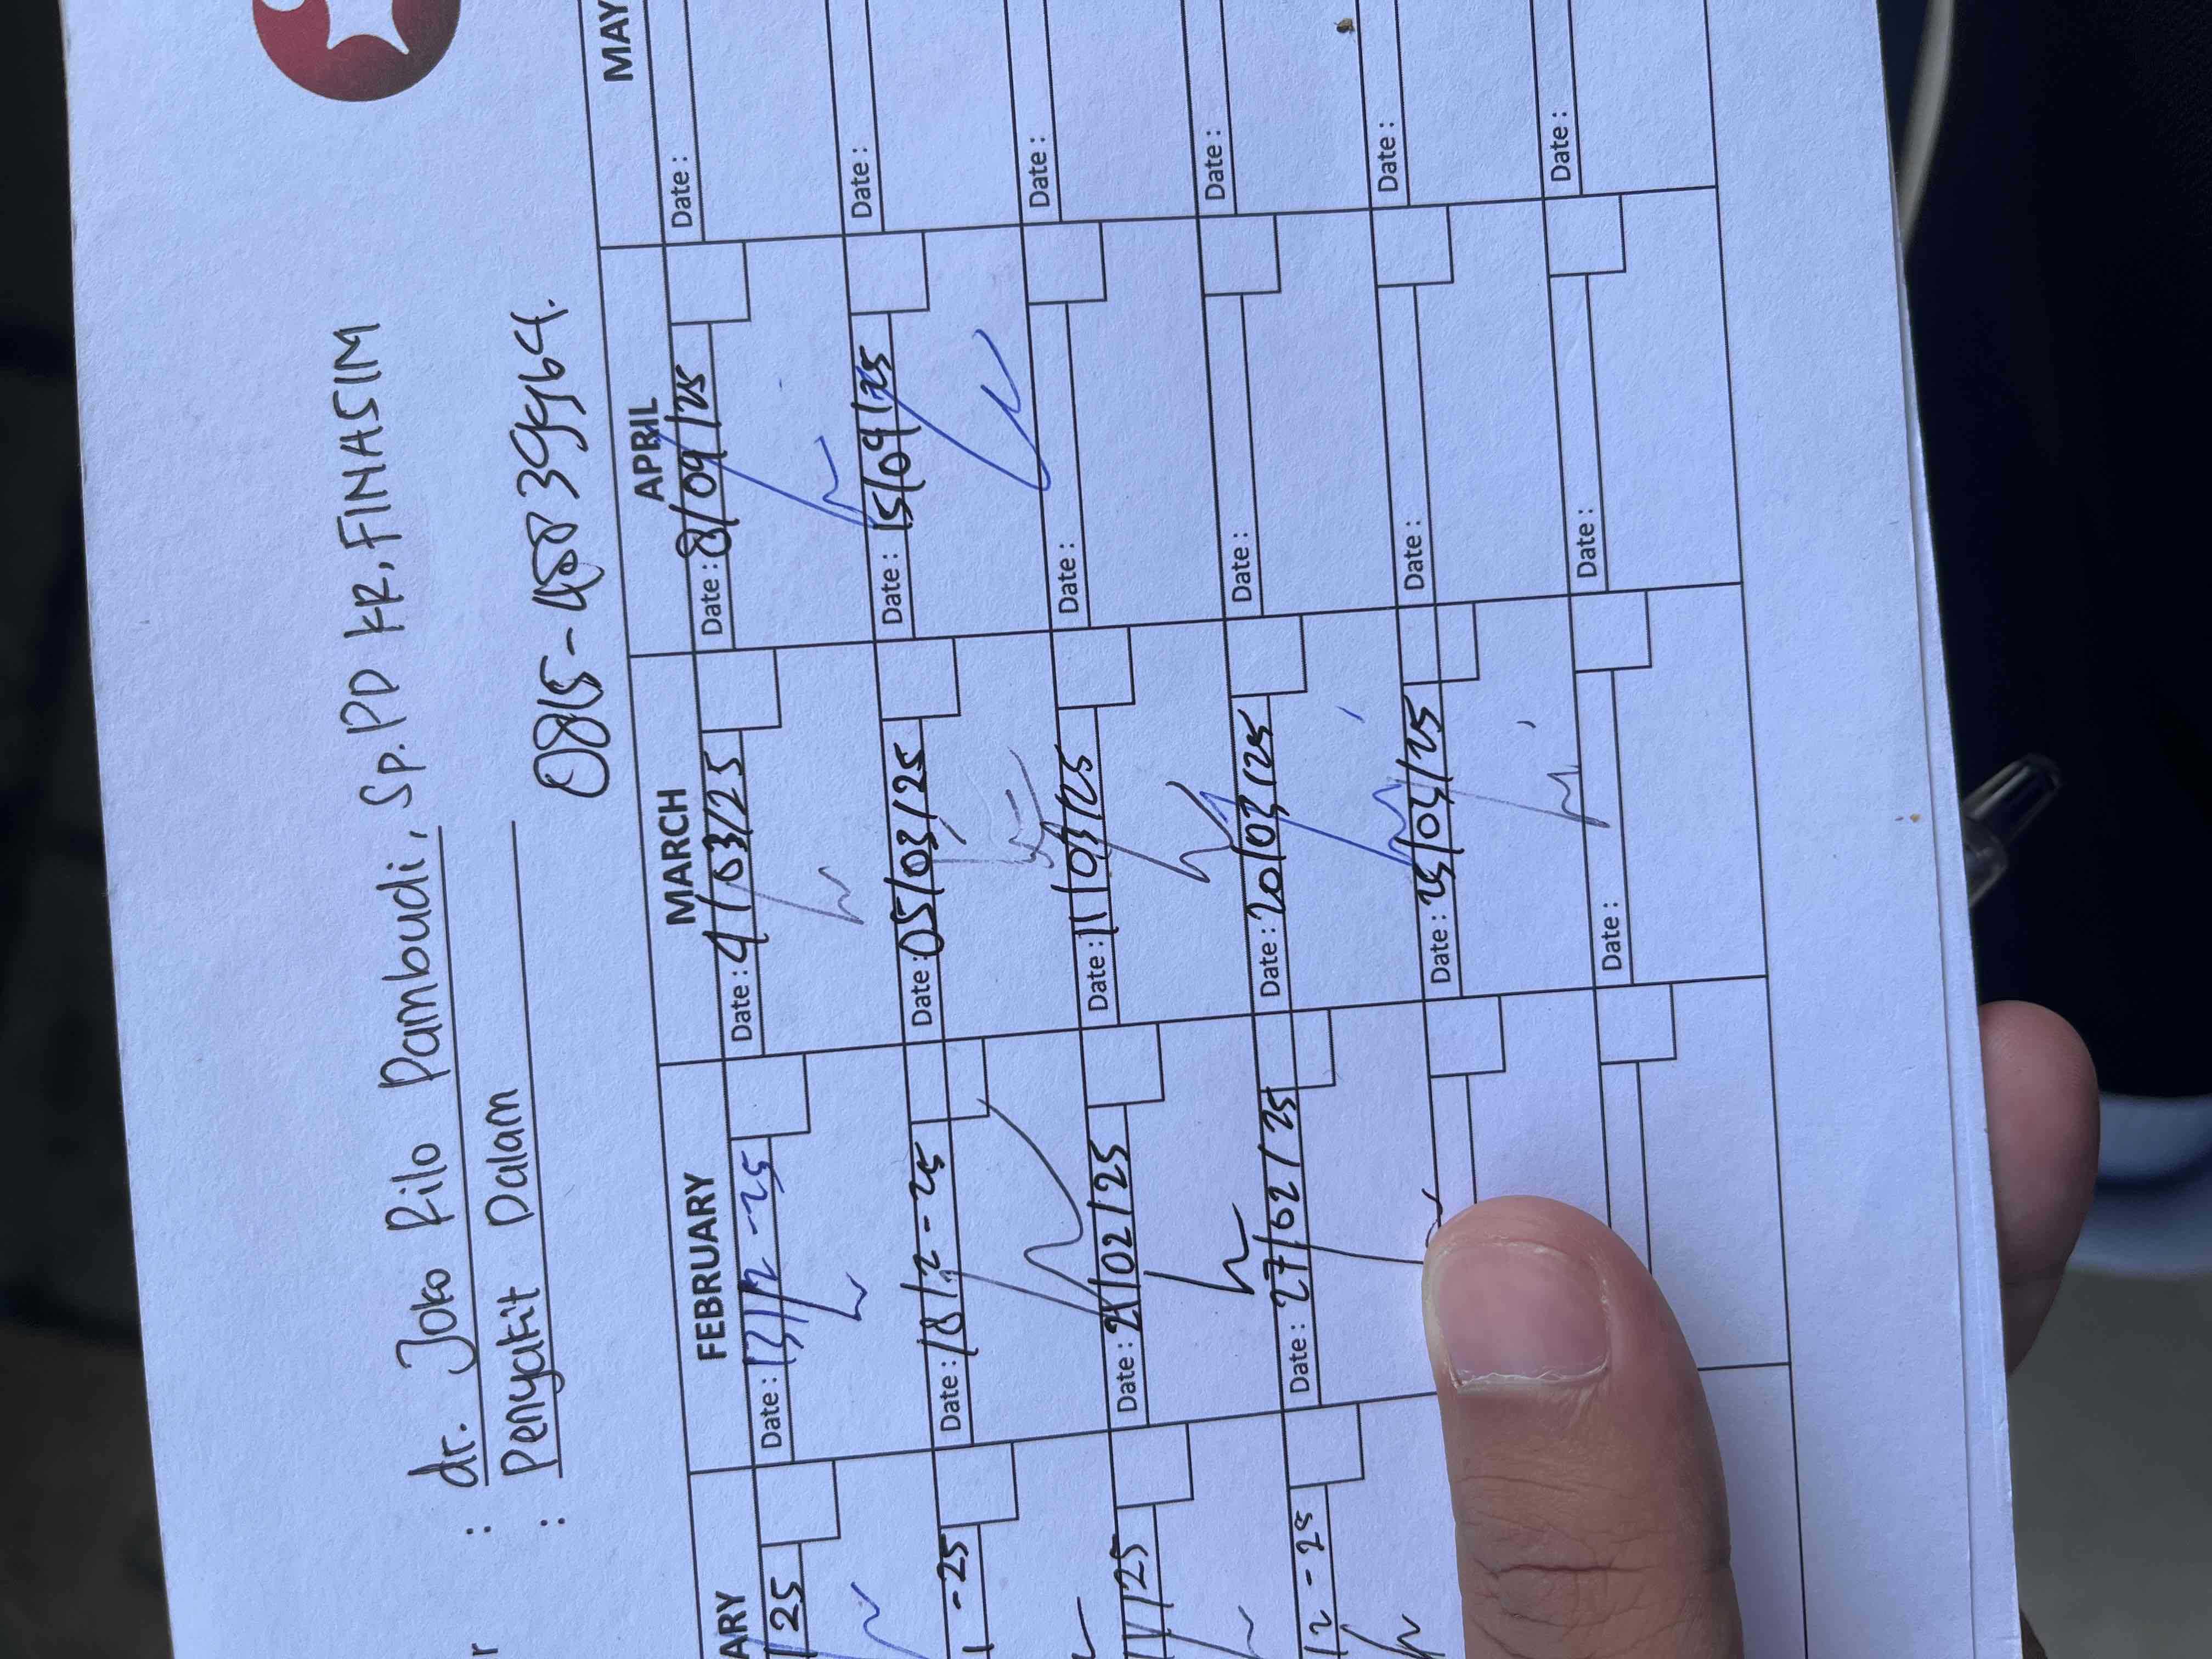 r : dr. Joko Rilo Pambudi, Sp.PD KR, FINASIM
: Penyakit Dalam
ARY FEBRUARY MARCH APRIL MAY
25 Date : 13/2-25 Date : 4/03/25 Date : 8/04/25 Date :
-25 Date : 18/2-25 Date : 05/03/25 Date : 15/04/25 Date :
/25 Date : 21/02/25 Date : 11/03/25 Date : Date :
/2-25 Date : 27/02/25 Date : 20/03/25 Date : Date :
Date : 25/03/25 Date : Date :
Date : Date : Date :